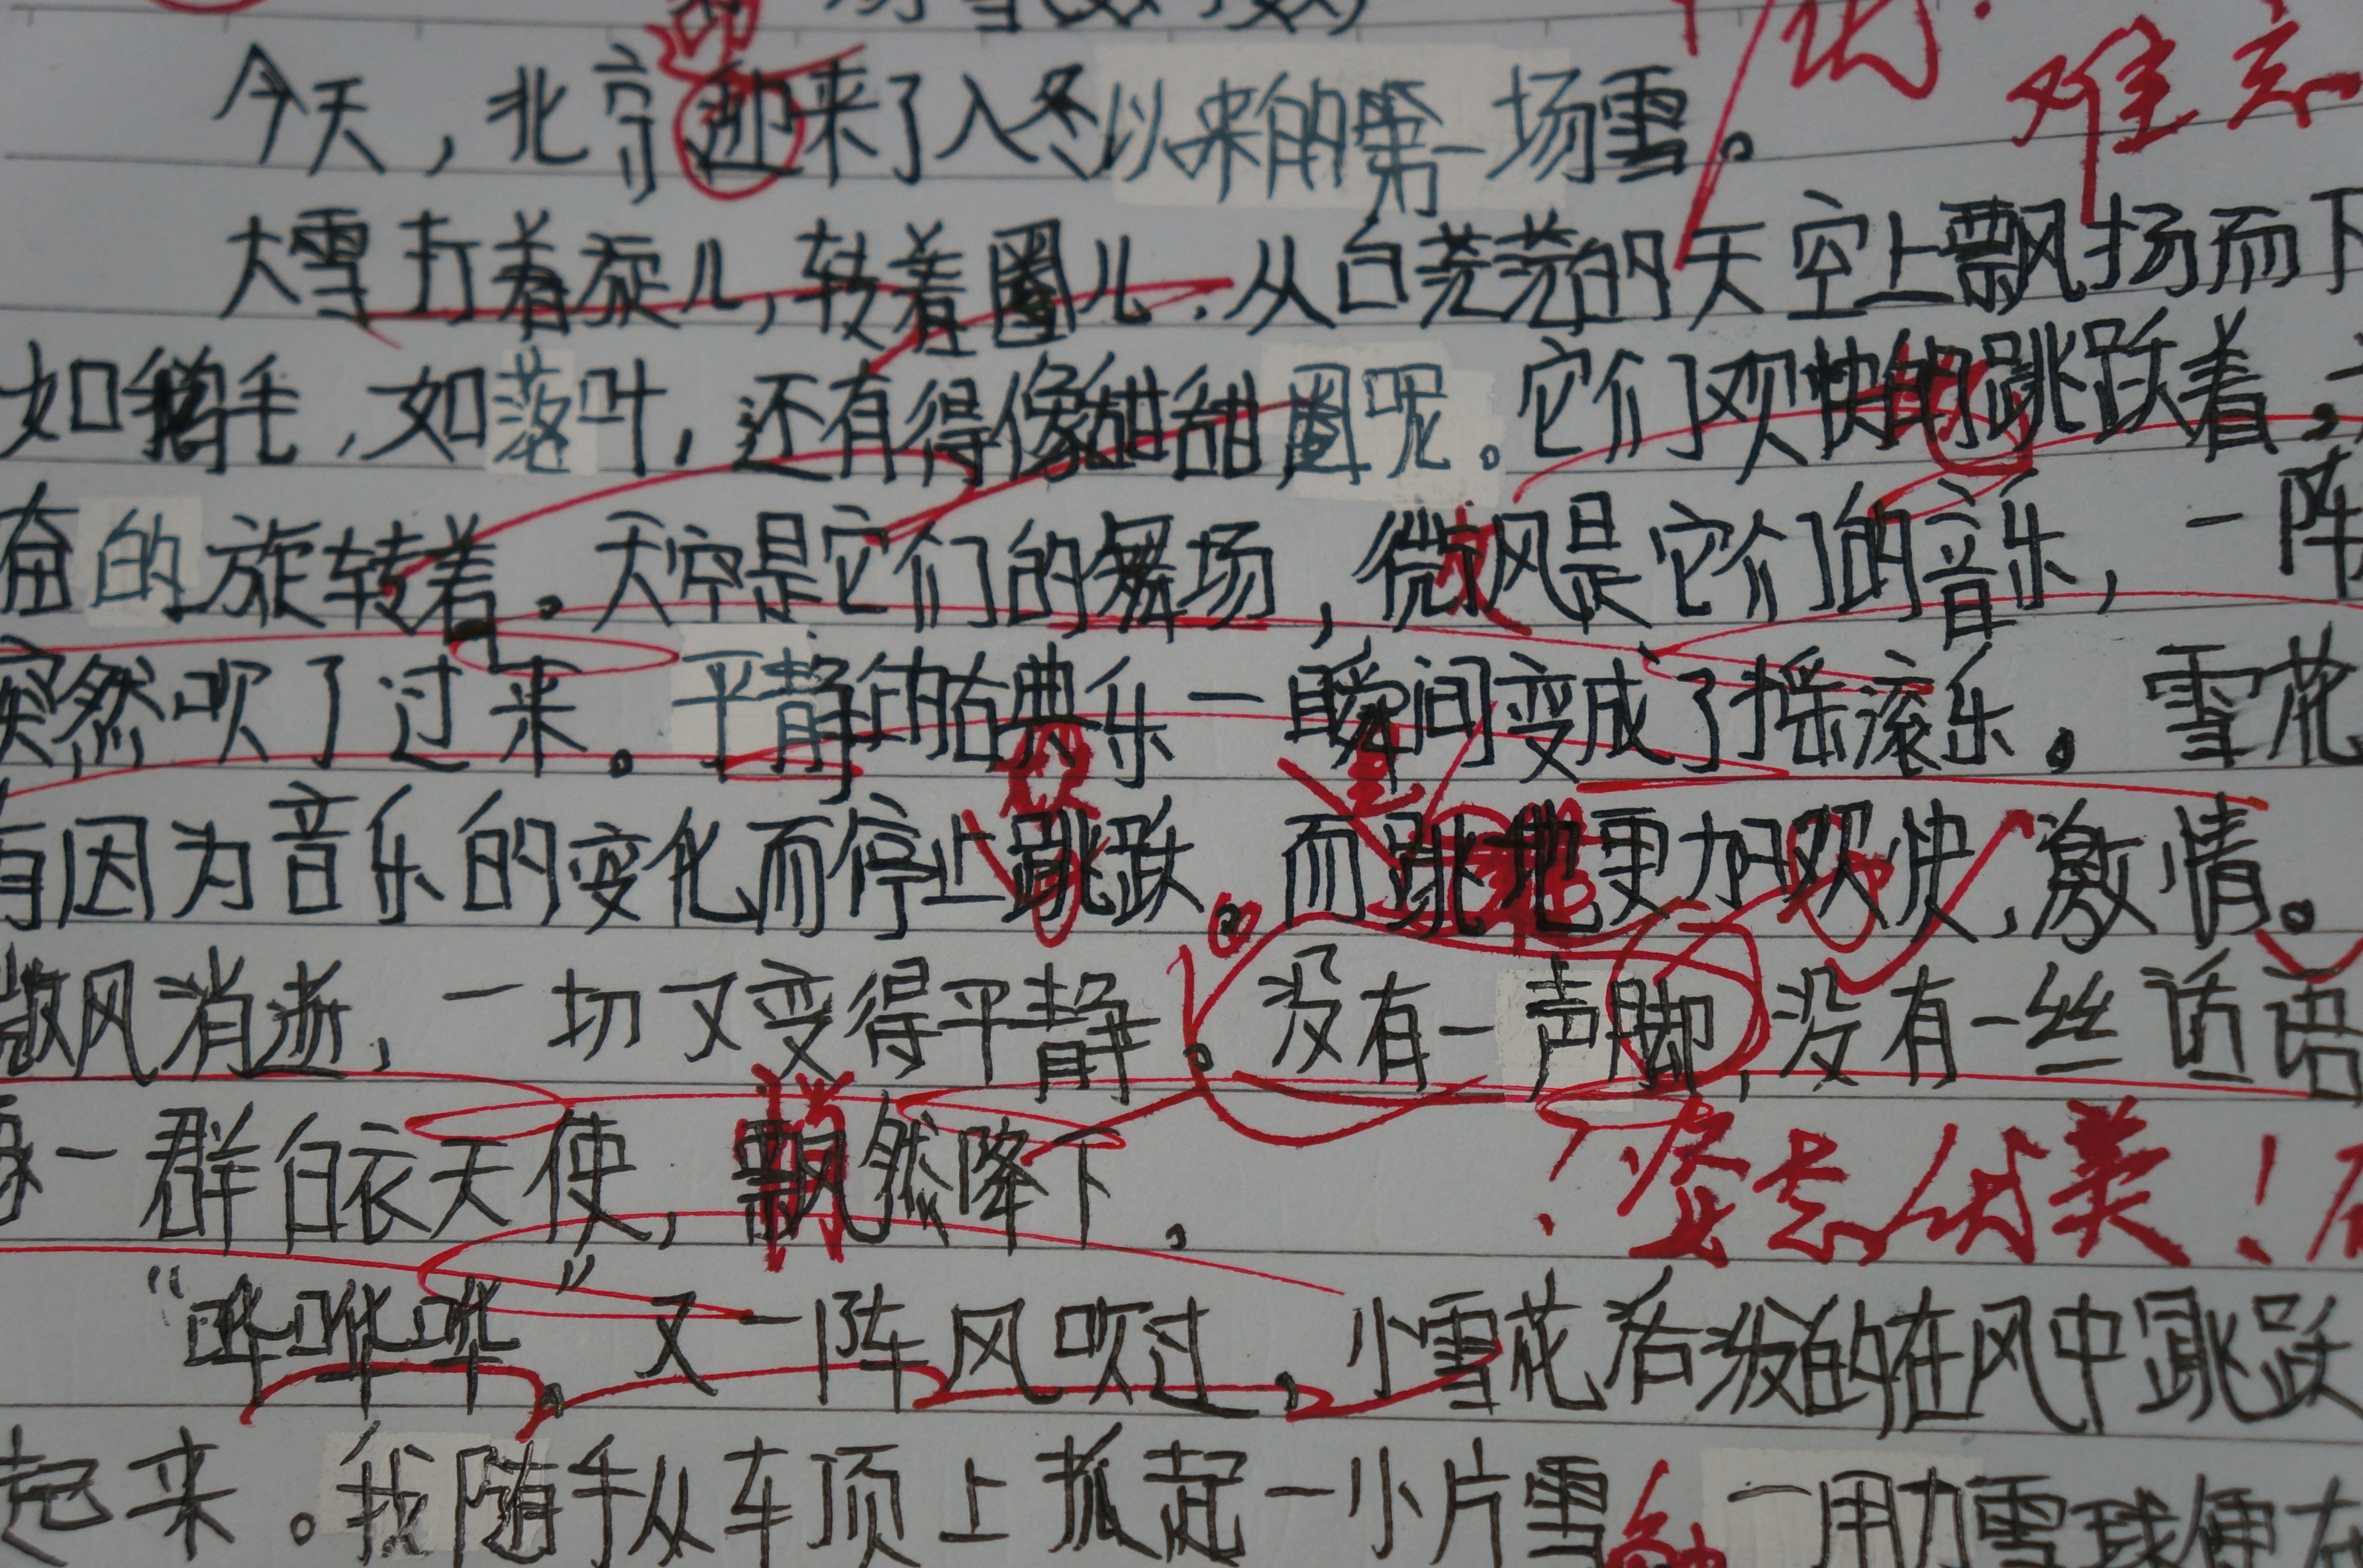 今天，北京迎来了入冬以来的第一场雪。
难忘
大雪打着旋儿，转着圈儿，从白茫茫的天空上飘扬而下
如鹅毛，如落叶，还有得像甜甜圈呢。它们欢快的跳跃着，
奋的旋转着。天空是它们的舞场，微风是它们的音乐，一阵
突然吹了过来。平静的古典乐一瞬间变成了摇滚乐。雪花
有因为音乐的变化而停止跳跃。而跳地更加欢快，激情。
微风消逝，一切又变得平静。没有一声脚，没有一丝话语
像一群白衣天使，飘然降下。
姿态优美！
“哗哗哗”。又一阵风吹过，小雪花活泼的在风中跳跃
起来。我随手从车顶上抓起一小片雪，一用力雪球便在